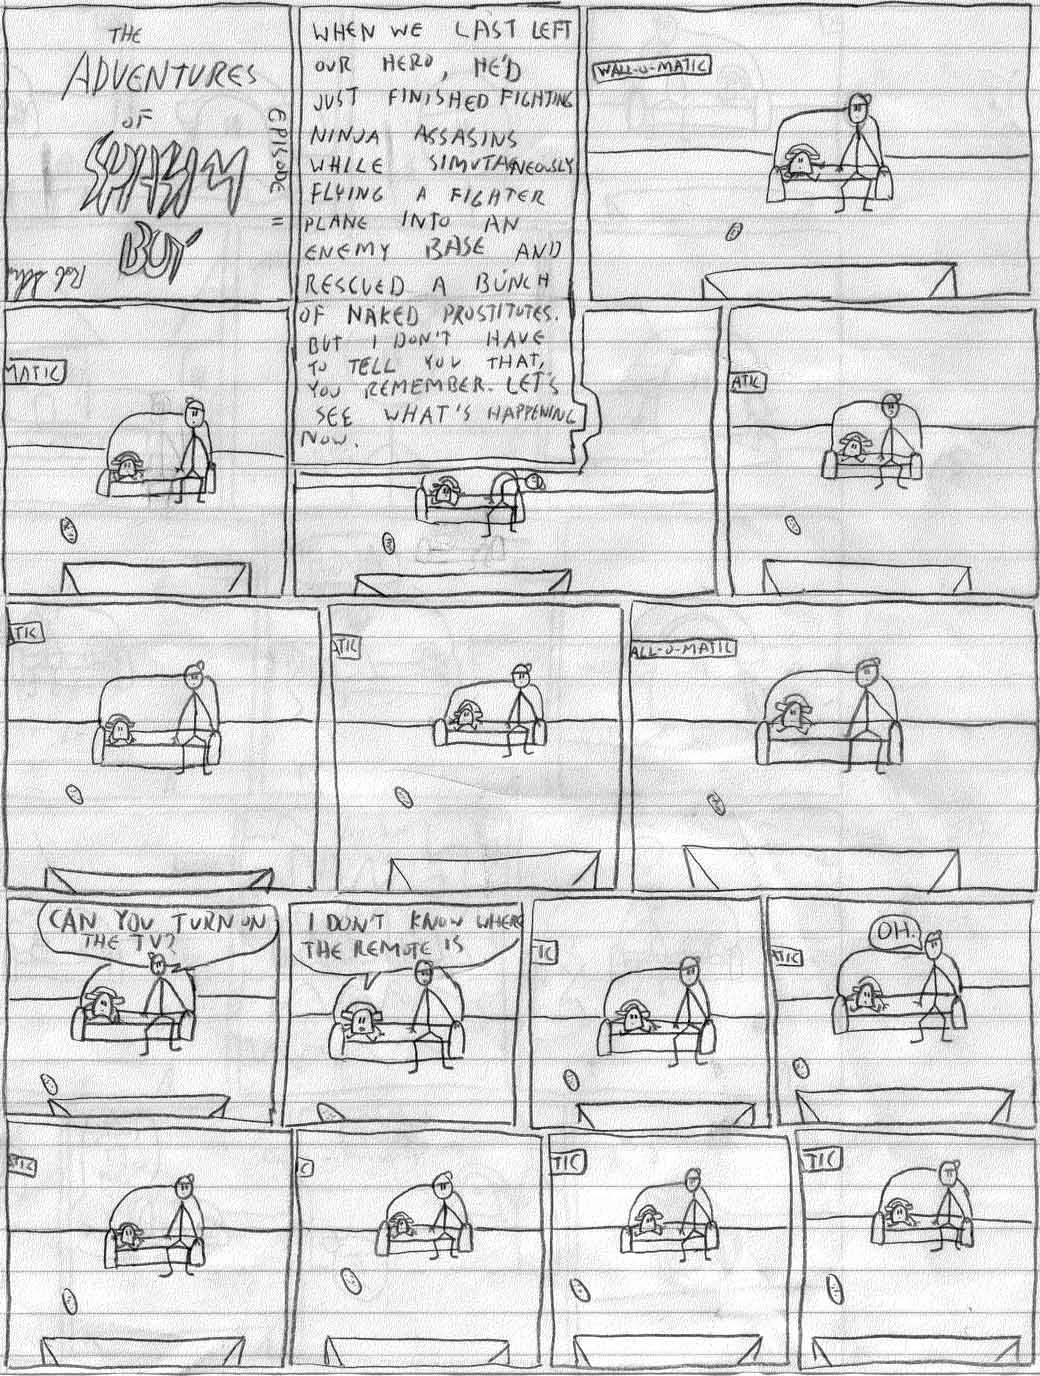 THE
ADVENTURES
OF
SPASIM
BOY
EPISODE =
WHEN WE LAST LEFT
OUR HERO, HE'D
JUST FINISHED FIGHTING
NINJA ASSASINS
WHILE SIMUTANEOUSLY
FLYING A FIGHTER
PLANE INTO AN
ENEMY BASE AND
RESCUED A BUNCH
OF NAKED PROSTITUTES.
BUT I DON'T HAVE
TO TELL YOU THAT,
YOU REMEMBER. LET'S
SEE WHAT'S HAPPENING
NOW.
WALL-O-MATIC
MATIC
ATIC
ATIC
ATIC
ALL-O-MATIC
CAN YOU TURN ON
THE TV?
I DON'T KNOW WHERE
THE REMOTE IS
IC
ATIC
OH.
TIC
C
TIC
TIC